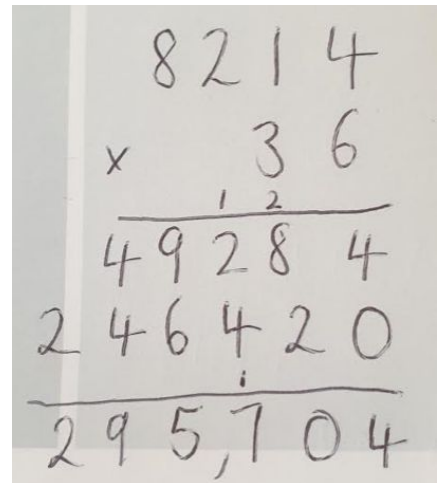 8214
x 36
1 2
49284
246420
1
295,704